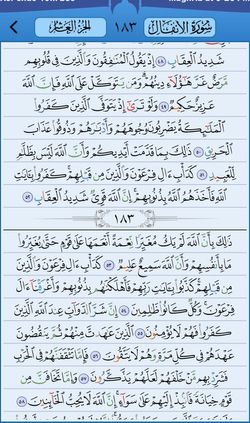 سُورَةُ الأَنفَالِ ١٨٣ الجُزءُ العَاشِرُ
شَدِيدُ الْعِقَابِ ٤٨ إِذْ يَقُولُ الْمُنَافِقُونَ وَالَّذِينَ فِي قُلُوبِهِم
مَّرَضٌ غَرَّ هَٰؤُلَاءِ دِينُهُمْ وَمَن يَتَوَكَّلْ عَلَى اللَّهِ فَإِنَّ اللَّهَ
عَزِيزٌ حَكِيمٌ ٤٩ وَلَوْ تَرَىٰ إِذْ يَتَوَفَّى الَّذِينَ كَفَرُوا
الْمَلَائِكَةُ يَضْرِبُونَ وُجُوهَهُمْ وَأَدْبَارَهُمْ وَذُوقُوا عَذَابَ
الْحَرِيقِ ٥٠ ذَٰلِكَ بِمَا قَدَّمَتْ أَيْدِيكُمْ وَأَنَّ اللَّهَ لَيْسَ بِظَلَّامٍ
لِّلْعَبِيدِ ٥١ كَدَأْبِ آلِ فِرْعَوْنَ وَالَّذِينَ مِن قَبْلِهِمْ كَفَرُوا بِآيَاتِ
اللَّهِ فَأَخَذَهُمُ اللَّهُ بِذُنُوبِهِمْ إِنَّ اللَّهَ قَوِيٌّ شَدِيدُ الْعِقَابِ ٥٢
١٨٣
ذَٰلِكَ بِأَنَّ اللَّهَ لَمْ يَكُ مُغَيِّرًا نِّعْمَةً أَنْعَمَهَا عَلَىٰ قَوْمٍ حَتَّىٰ يُغَيِّرُوا
مَا بِأَنفُسِهِمْ وَأَنَّ اللَّهَ سَمِيعٌ عَلِيمٌ ٥٣ كَدَأْبِ آلِ فِرْعَوْنَ وَالَّذِينَ
مِن قَبْلِهِمْ كَذَّبُوا بِآيَاتِ رَبِّهِمْ فَأَهْلَكْنَاهُم بِذُنُوبِهِمْ وَأَغْرَقْنَا آلَ
فِرْعَوْنَ وَكُلٌّ كَانُوا ظَالِمِينَ ٥٤ إِنَّ شَرَّ الدَّوَابِّ عِندَ اللَّهِ الَّذِينَ
كَفَرُوا فَهُمْ لَا يُؤْمِنُونَ ٥٥ الَّذِينَ عَاهَدتَّ مِنْهُمْ ثُمَّ يَنقُضُونَ
عَهْدَهُمْ فِي كُلِّ مَرَّةٍ وَهُمْ لَا يَتَّقُونَ ٥٦ فَإِمَّا تَثْقَفَنَّهُمْ فِي الْحَرْبِ
فَشَرِّدْ بِهِم مَّنْ خَلْفَهُمْ لَعَلَّهُمْ يَذَّكَّرُونَ ٥٧ وَإِمَّا تَخَافَنَّ مِن
قَوْمٍ خِيَانَةً فَانبِذْ إِلَيْهِمْ عَلَىٰ سَوَاءٍ إِنَّ اللَّهَ لَا يُحِبُّ الْخَائِنِينَ ٥٨